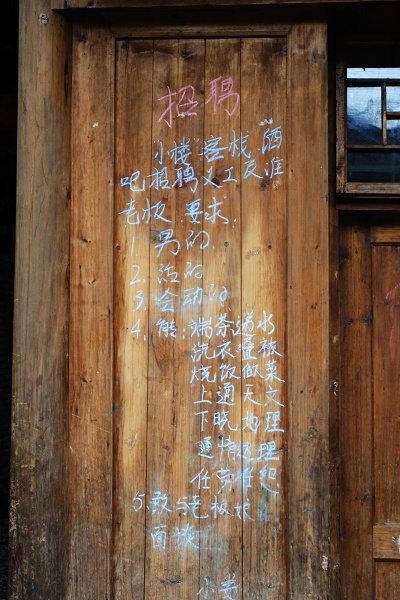 招聘
小楼"客栈"酒
吧招聘义工及准
老板.要求.
1.男的.
2.活的
3.会动的
4.能:端茶递水
洗衣叠被
烧饭做菜
上通天文
下晓地理
通情达理
任劳任怨
5.敢与老板娘
面谈
小美